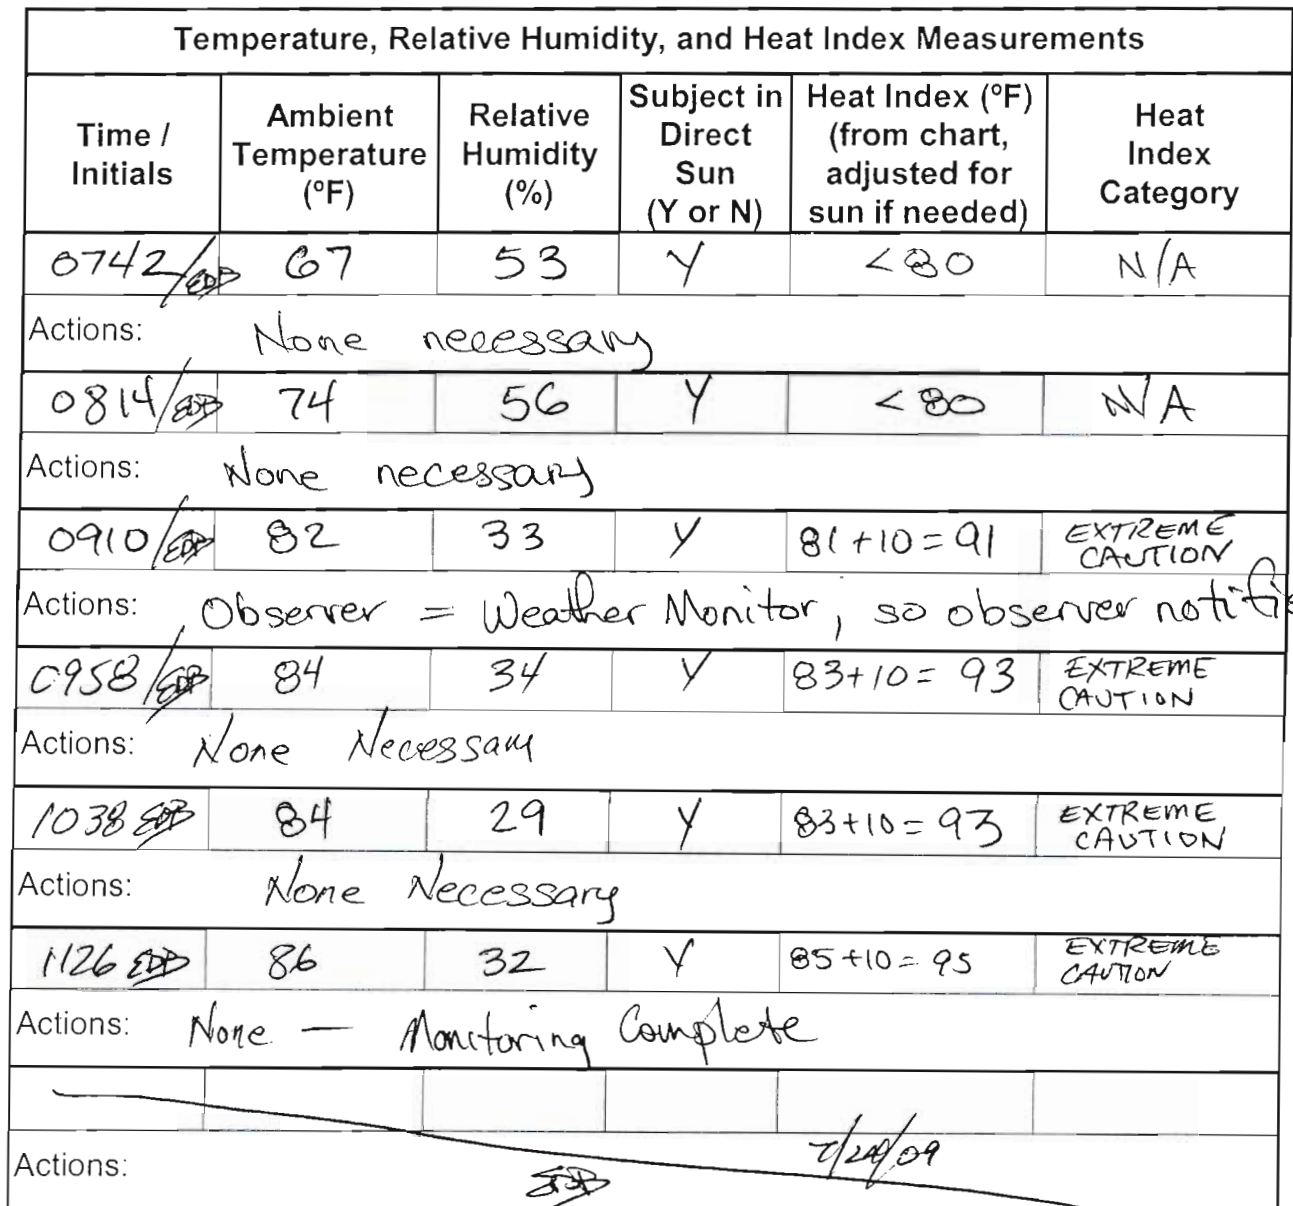 Temperature, Relative Humidity, and Heat Index Measurements
Time / Initials Ambient Temperature (ºF) Relative Humidity (%) Subject in Direct Sun (Y or N) Heat Index (ºF) (from chart, adjusted for sun if needed) Heat Index Category
0742/EDB 67 53 Y <80 N/A
Actions: None necessary
0814/EDB 74 56 Y <80 N/A
Actions: None necessary
0910/EDB 82 33 Y 81+10=91 EXTREME CAUTION
Actions: Observer = Weather Monitor, so observer notifi
0958/EDB 84 34 Y 83+10= 93 EXTREME CAUTION
Actions: None Necessary
1038 EDB 84 29 Y 83+10=93 EXTREME CAUTION
Actions: None Necessary
1126 EDB 86 32 Y 85+10=95 EXTREME CAUTION
Actions: None — Monitoring Complete
Actions: EDB